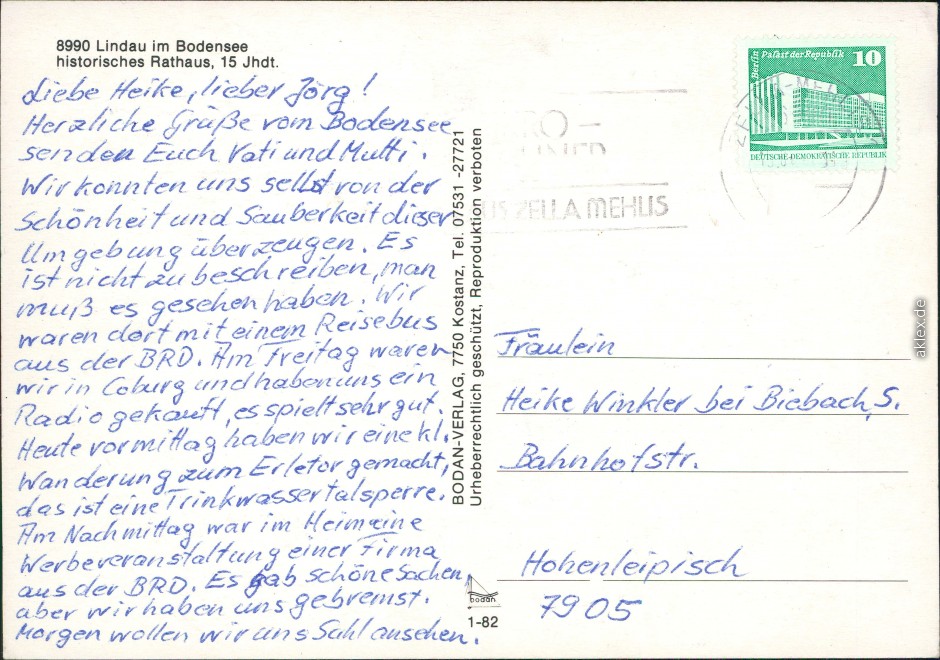 8990 Lindau im Bodensee
historisches Rathaus, 15 Jhdt.
Liebe Heike, lieber Jörg!
Herzliche Grüße vom Bodensee
senden Euch Vati und Mutti.
Wir konnten uns selbst von der
Schönheit und Sauberkeit dieser
Umgebung überzeugen. Es
ist nicht zu beschreiben, man
muß es gesehen haben. Wir
waren dort mit einem Reisebus
aus der BRD. Am Freitag waren
wir in Coburg und haben uns ein
Radio gekauft, es spielt sehr gut.
Heute vormittag haben wir eine kl.
Wanderung zum Erletor gemacht,
das ist eine Trinkwassertalsperre.
Am Nachmittag war im Heim eine
Werbeveranstaltung einer Firma
aus der BRD. Es gab schöne Sachen,
aber wir haben uns gebremst.
Morgen wollen wir uns Suhl ansehen.
BODAN-VERLAG, 7750 Kostanz, Tel. 07531 -27721
Urheberrechtlich geschützt, Reproduktion verboten
bodan
1-82
Berlin Palast der Republik 10
DEUTSCHE DEMOKRATISCHE REPUBLIK
ZELLA MEHLIS
Fräulein
Heike Winkler bei Biebach, S.
Bahnhofstr.
Hohenleipisch
7905
aklex.de